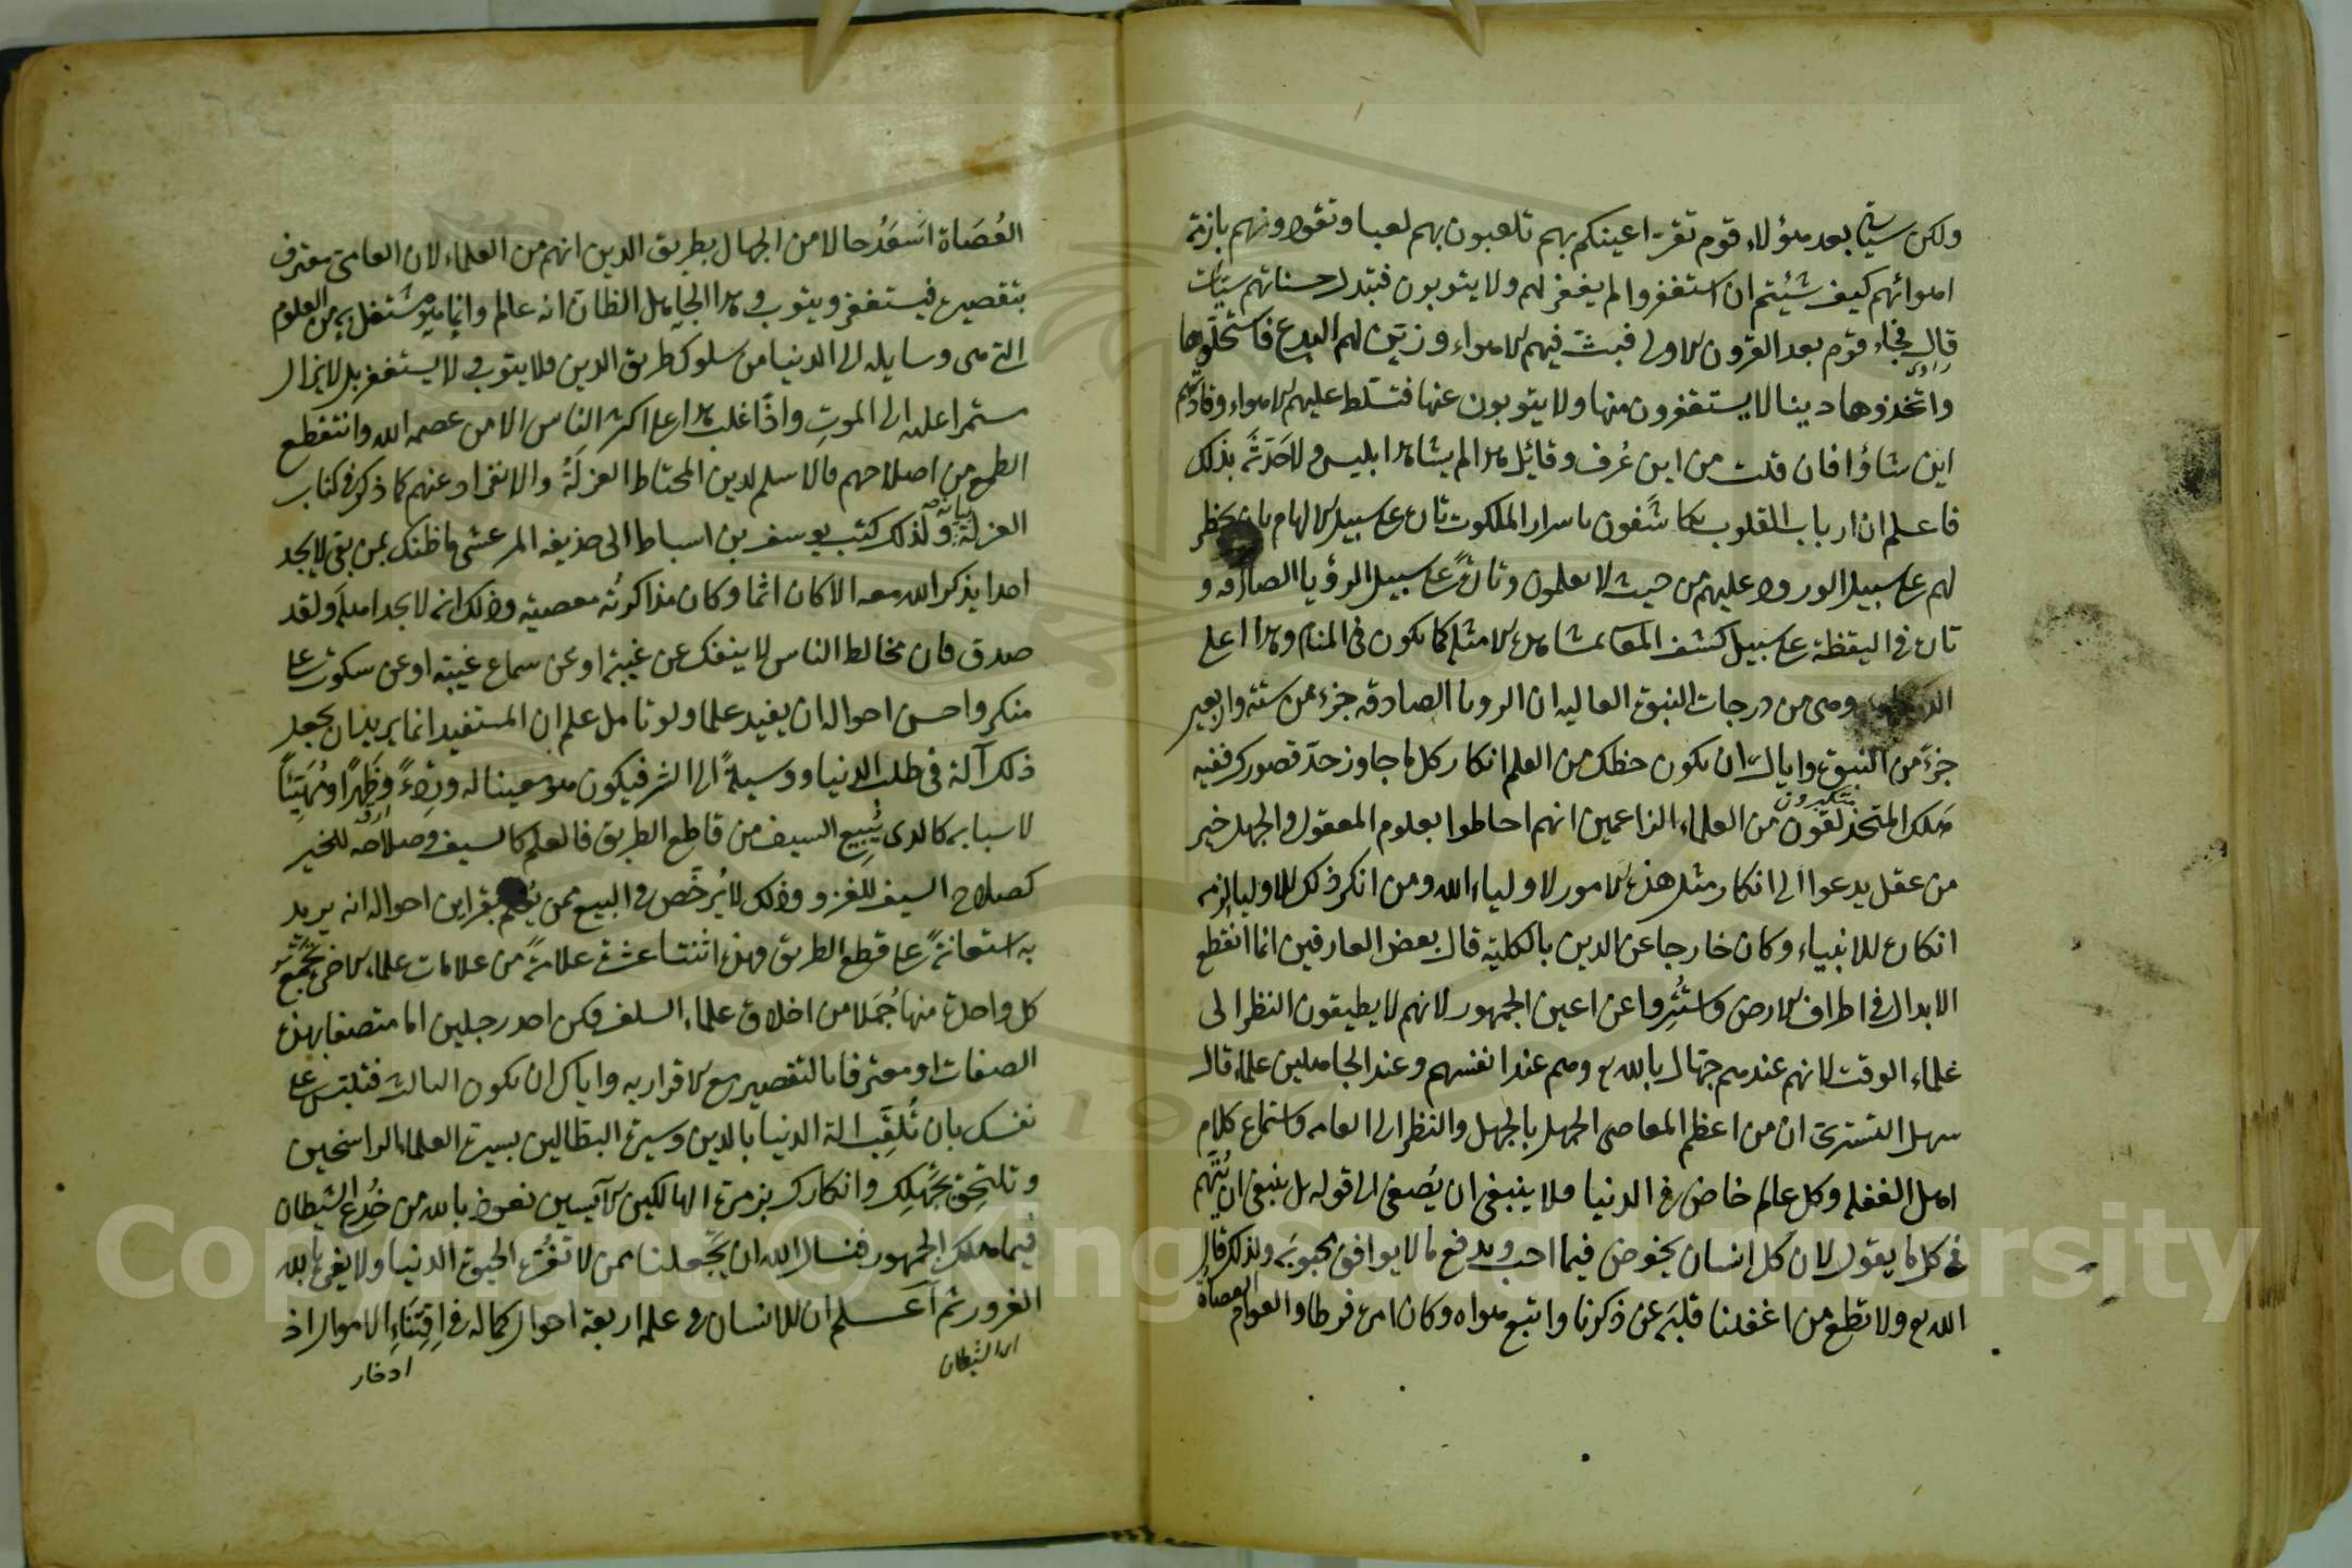 ولكن سيأتي بعد هؤلاء قوم تقر اعينكم بهم تلعبون بهم لعبا وتقودونهم بازمة
اهوائهم كيف شئيتم ان استغفروا لم يغفر لهم ولا يتوبون فتبدل حسناتهم سيئات
قال فجاء قوم بعد القرون الاولى فبث فيهم الاهواء وزين لهم البدع فاستحلوها
واتخذوها دينا لا يستغفرون منها ولا يتوبون عنها فتسلط عليهم الاهواء وقادتهم
اين شاؤا فان قلت من اين عرف وقائل هذا لم يشاهد ابليس ولا حدثه بذلك
فاعلم ان ارباب القلوب يكاشفون باسرار الملكوت تارة على سبيل الالهام بان يخطر
لهم على سبيل الورود عليهم من حيث لا يعلمون وتارة على سبيل الرؤيا الصادقه و
تارة في اليقظة على سبيل كشف المعا بمشاهدة الامثلة كما يكون في المنام وهذا اعلى
وهي من درجات النبوة العاليه ان الرويا الصادقه جزء من ستة واربعين
جزء من النبوة واياك ان يكون حظك من العلم انكار كل ما جاوز حد قصورك ففيه
هلك المتحذلقون من العلماء الزاعمين انهم احاطوا بعلوم المعقول والجهل خير
متكبرون
من عقل يدعوا الى انكار مثل هذه الامور لاولياء الله ومن انكر ذلك للاولياء لزمه
انكاره للانبياء وكان خارجا عن الدين بالكلية قال بعض العارفين انما انقطع
الابدال في اطراف الارض واستتروا عن اعين الجمهور لانهم لا يطيقون النظر الى
علماء الوقت لانهم عندهم جهال بالله تع وهم عند انفسهم وعند الجاهلين علماء قال
سهل التستري ان من اعظم المعاصي الجهل بالجهل والنظر الى العامه واستماع كلام
اهل الغفله وكل عالم خاض في الدنيا فلا ينبغي ان يصغى الى قوله بل ينبغي ان يتهم
في كل ما يقول لان كل انسان يخوض فيما احب ويدفع ما لا يوافق محبوبه ولذلك قال
الله تع ولا تطع من اغفلنا قلبه عن ذكرنا واتبع هواه وكان امره فرطا والعوام العصاة
العصاة اسعد حالا من الجهال بطريق الدين انهم من العلماء لان العامي معترف
بتقصيره فيستغفر ويتوب وهذا الجاهل الظان انه عالم وانما هو مشتغل به من العلوم
التي هي وسايله الى الدنيا من سلوك طريق الدين فلا يتوب ولا يستغفر بل لا يزال
مستمرا عليه الى الموت واذا غلب هذا على اكثر الناس الا من عصمه الله وانتقطع
الطمع من اصلاحهم فالاسلم لدين المحتاط العزلة والانفراد عنهم كما ذكر في كتاب
العزلة بيانه ولذلك كتب يوسف بن اسباط الى حذيفه المرعشي ما ظنك بمن بقي لا يجد
احدا يذكر الله معه الا كان اثما وكان مذاكرته معصيته وذلك انه لا يجد اهله ولقد
صدق فان مخالط الناس لا ينفك عن غيبة او عن سماع غيبته او عن سكوت على
منكر واحسن احواله ان يفيد علما ولو تامل علم ان المستفيد انما يريد ان يجعل
ذلك آلة في طلب الدنيا ووسيلة الى الشر فيكون هو معينا له وردءً وظهرا ومهيئاً
لاسبابه كالذي يبيع السيف من قاطع الطريق فالعلم كالسيف وصلاحه للخير
كصلاح السيف للغزو وذلك لا يرخص في البيع ممن يعلم بقراين احواله انه يريد
به استعانة على قطع الطريق فهذه اثنتا عشرة علامة من علامات علماء الاخرة تجمع
كل واحدة منها جملا من اخلاق علماء السلف فكن احد رجلين اما متصفا بهذه
الصفات او معترفا بالتقصير مع الاقرار به واياك ان يكون الثالث فتلبس على
نفسك بان تلقب الة الدنيا بالدين وسيرة البطالين بسيرة العلماء الراسخين
وتلتحق بجهلك وانكارك بزمرة الهالكين الآيسين نعوذ بالله من خدع الشيطان
فبما هلك الجمهور فنسال الله ان يجعلنا ممن لا تغره الحيوة الدنيا ولا يغره بالله
الغرور ثم اعلم ان للانسان في علمه اربعة احوال كماله في اقتناء الاموال اذ
اى الشيطان
ادخار